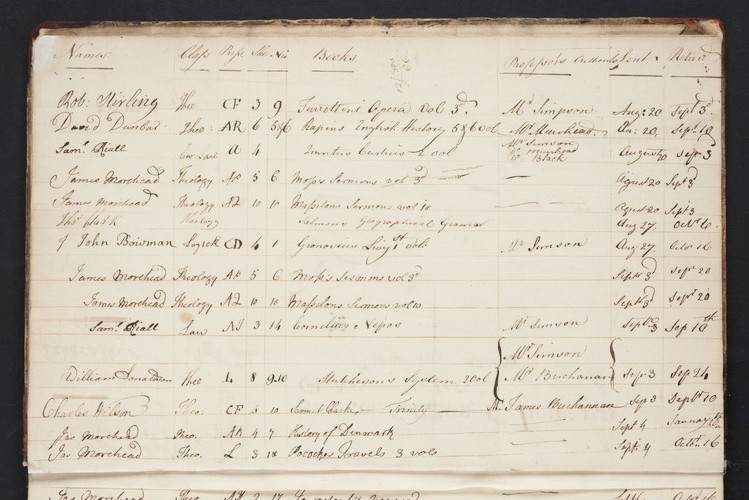 Names Class Press Shel No Books Professors Authority Sent Return
Rob: Stirling Theo CF 3 9 Turrettini Opera vol 3d. Mr Simpson Aug: 20 Sept 3d.
David Dunbar Theo: AR 6 5&6 Rapins English History 5&6 vol Mr Muirhead Au: 20, Sept. 10
Saml. Riall Civ Law A 4 Quintus Curtius 2 vol Mr Simson Mr Muirhead Dr Black August 20 Sep. 3
James Morehead Theology 5 6 Moss's Sermons vol 3d August 20 Sept 3
James Morehead Theology AZ 10 10 Massilons Sermons vol 10 August 20 Sept 3
Thos Clark Theology Salmons Geographical Gramar Aug 27. Octr 6
John Bowman Logick CD 4 1 Gronovius Livy 1st vol: Mr Simson Aug 27. Octor 16
James Morehead Theology 5 6 Moss's Sermons vol 3d Septr 3d Sepr 20
James Morehead Theology AZ 10 10 Massilons Sermons vol 10 Septr 3d Sept 20
Saml. Riall Law 3 14 Cornelius Nepos Mr Simson Septr 3 Sep 10th
Mr Simson
William Donaldson Theo L 8 9.10 Hutchesons System 2 vol Mr Buchanan Sepr 3 Sep 24
Charles Wilson Theo. CF 6 10 Samuel Clarke Trinity Mr James Buchannan Sep 3 Septbr 10
Jas Morehead Theo. AR 4 7 History of Denmark Sept 4
Jas Morehead Theo. L 3 Pocockes Travels 3 vols Sept: 4 Octor. 16
Jas Morehead Theo 2 17